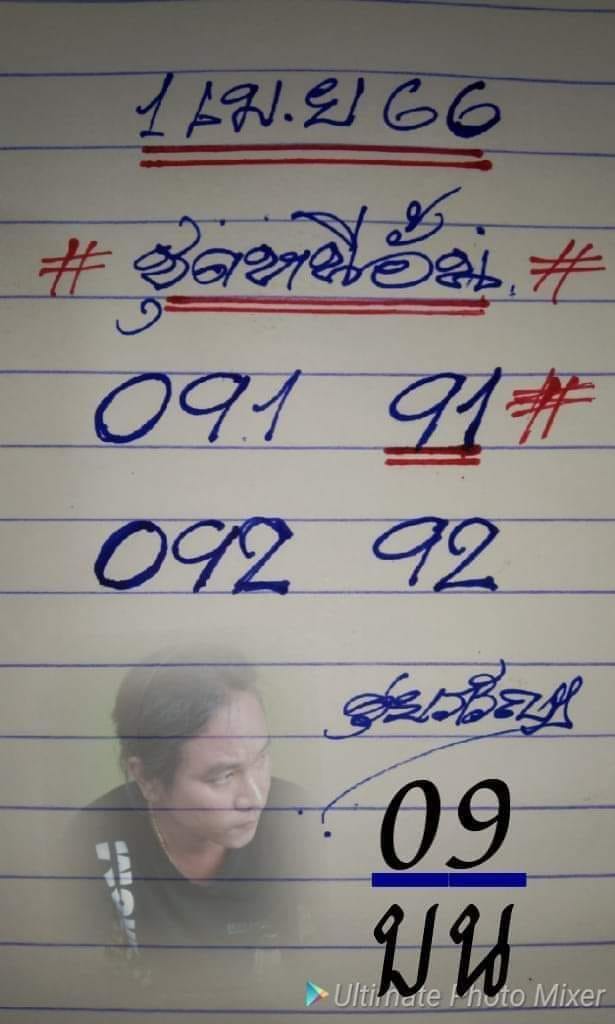 1 เม.ย 66
# ชุดหนีอั้น #
091 91 #
092 92
09
บน
MGM
Ultimate Photo Mixer